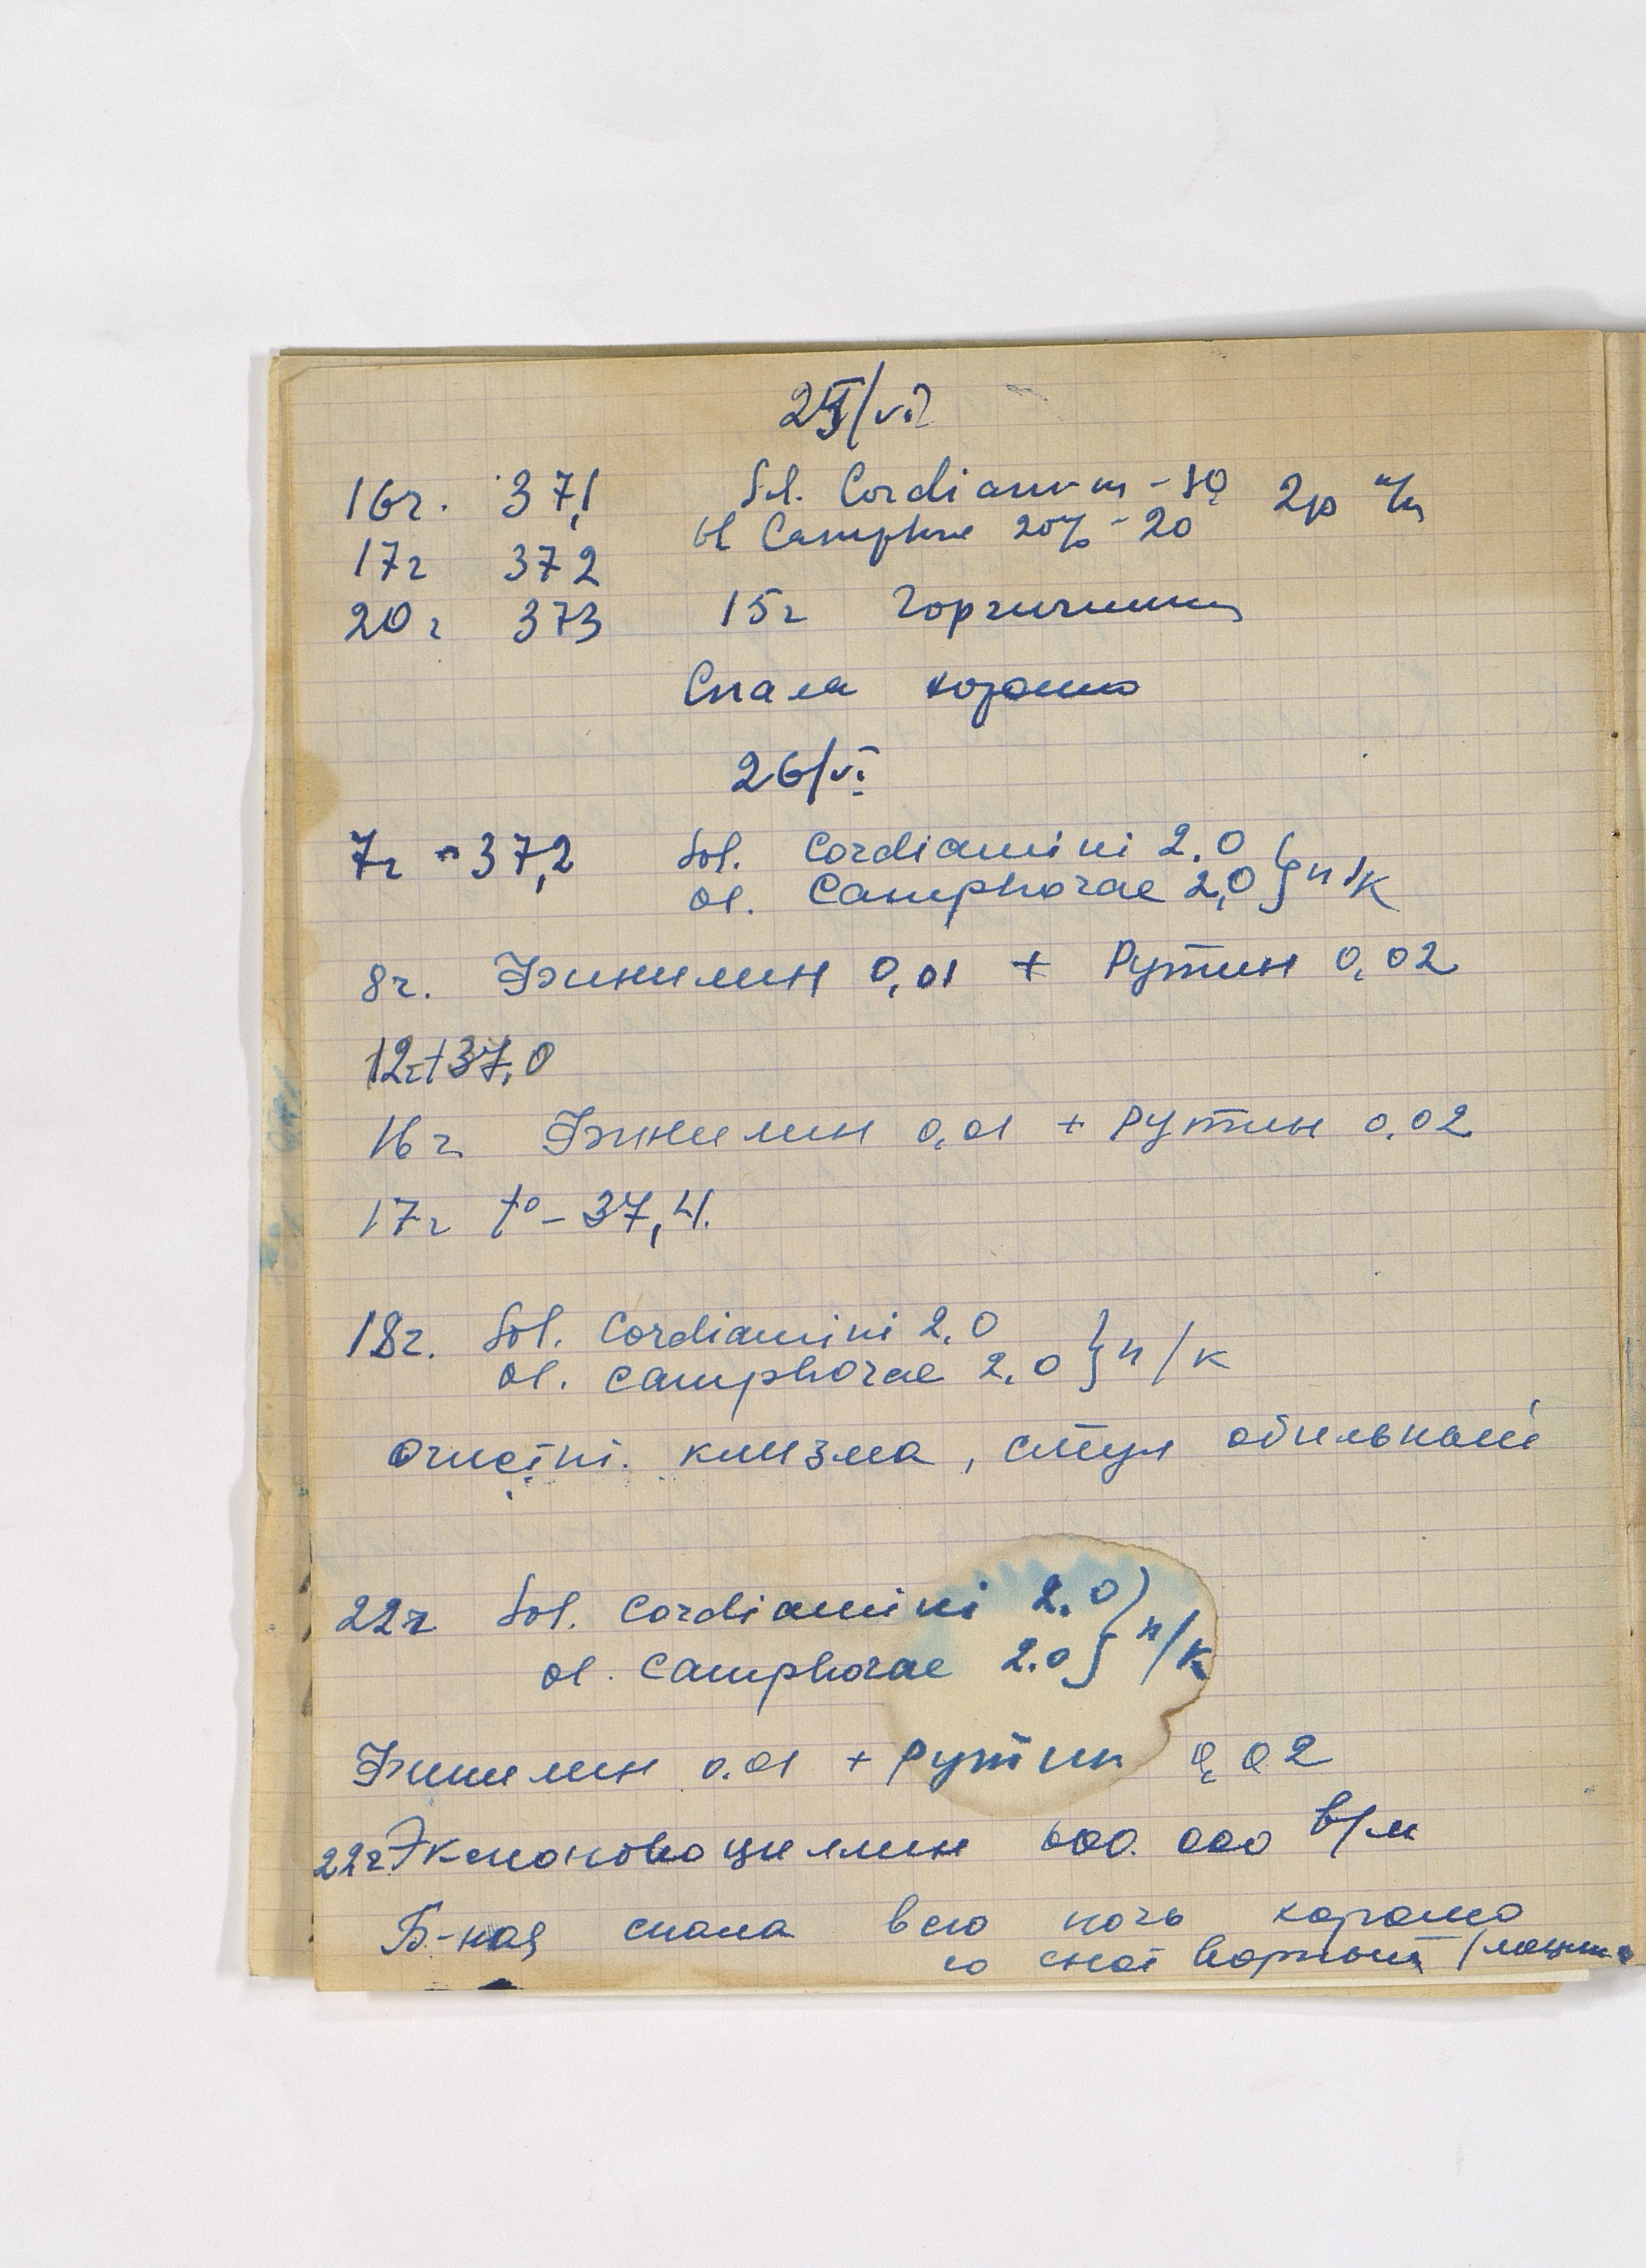 25/VI
16ч. 37,1 Sol. Cordiamin - 2р п/к
17ч 37 2 Ol Camphorae 20% - 20
20ч 373 15ч Горчичники
Спала хорошо
26/VI
7ч - 37,2 Sol. Cordiamini 2.0
Ol. Camphorae 2,0 } п/к
8ч. Эринилин 0,01 + Рутин 0,02
12ч t 37,0
16ч Эринилин 0,01 + Рутин 0,02
17ч t° - 37,4.
18ч. Sol. Cordiamini 2,0
Ol. Camphorae 2,0 } п/к
очистит. клизма, стул обильный
22ч Sol. Cordiamini 2.0
Ol. Camphorae 2.0 } п/к
Эринилин 0.01 + Рутин 0,02
22ч Экмоновоциллин 600.000 в/м
Б-ная спала всю ночь хорошо
со сна